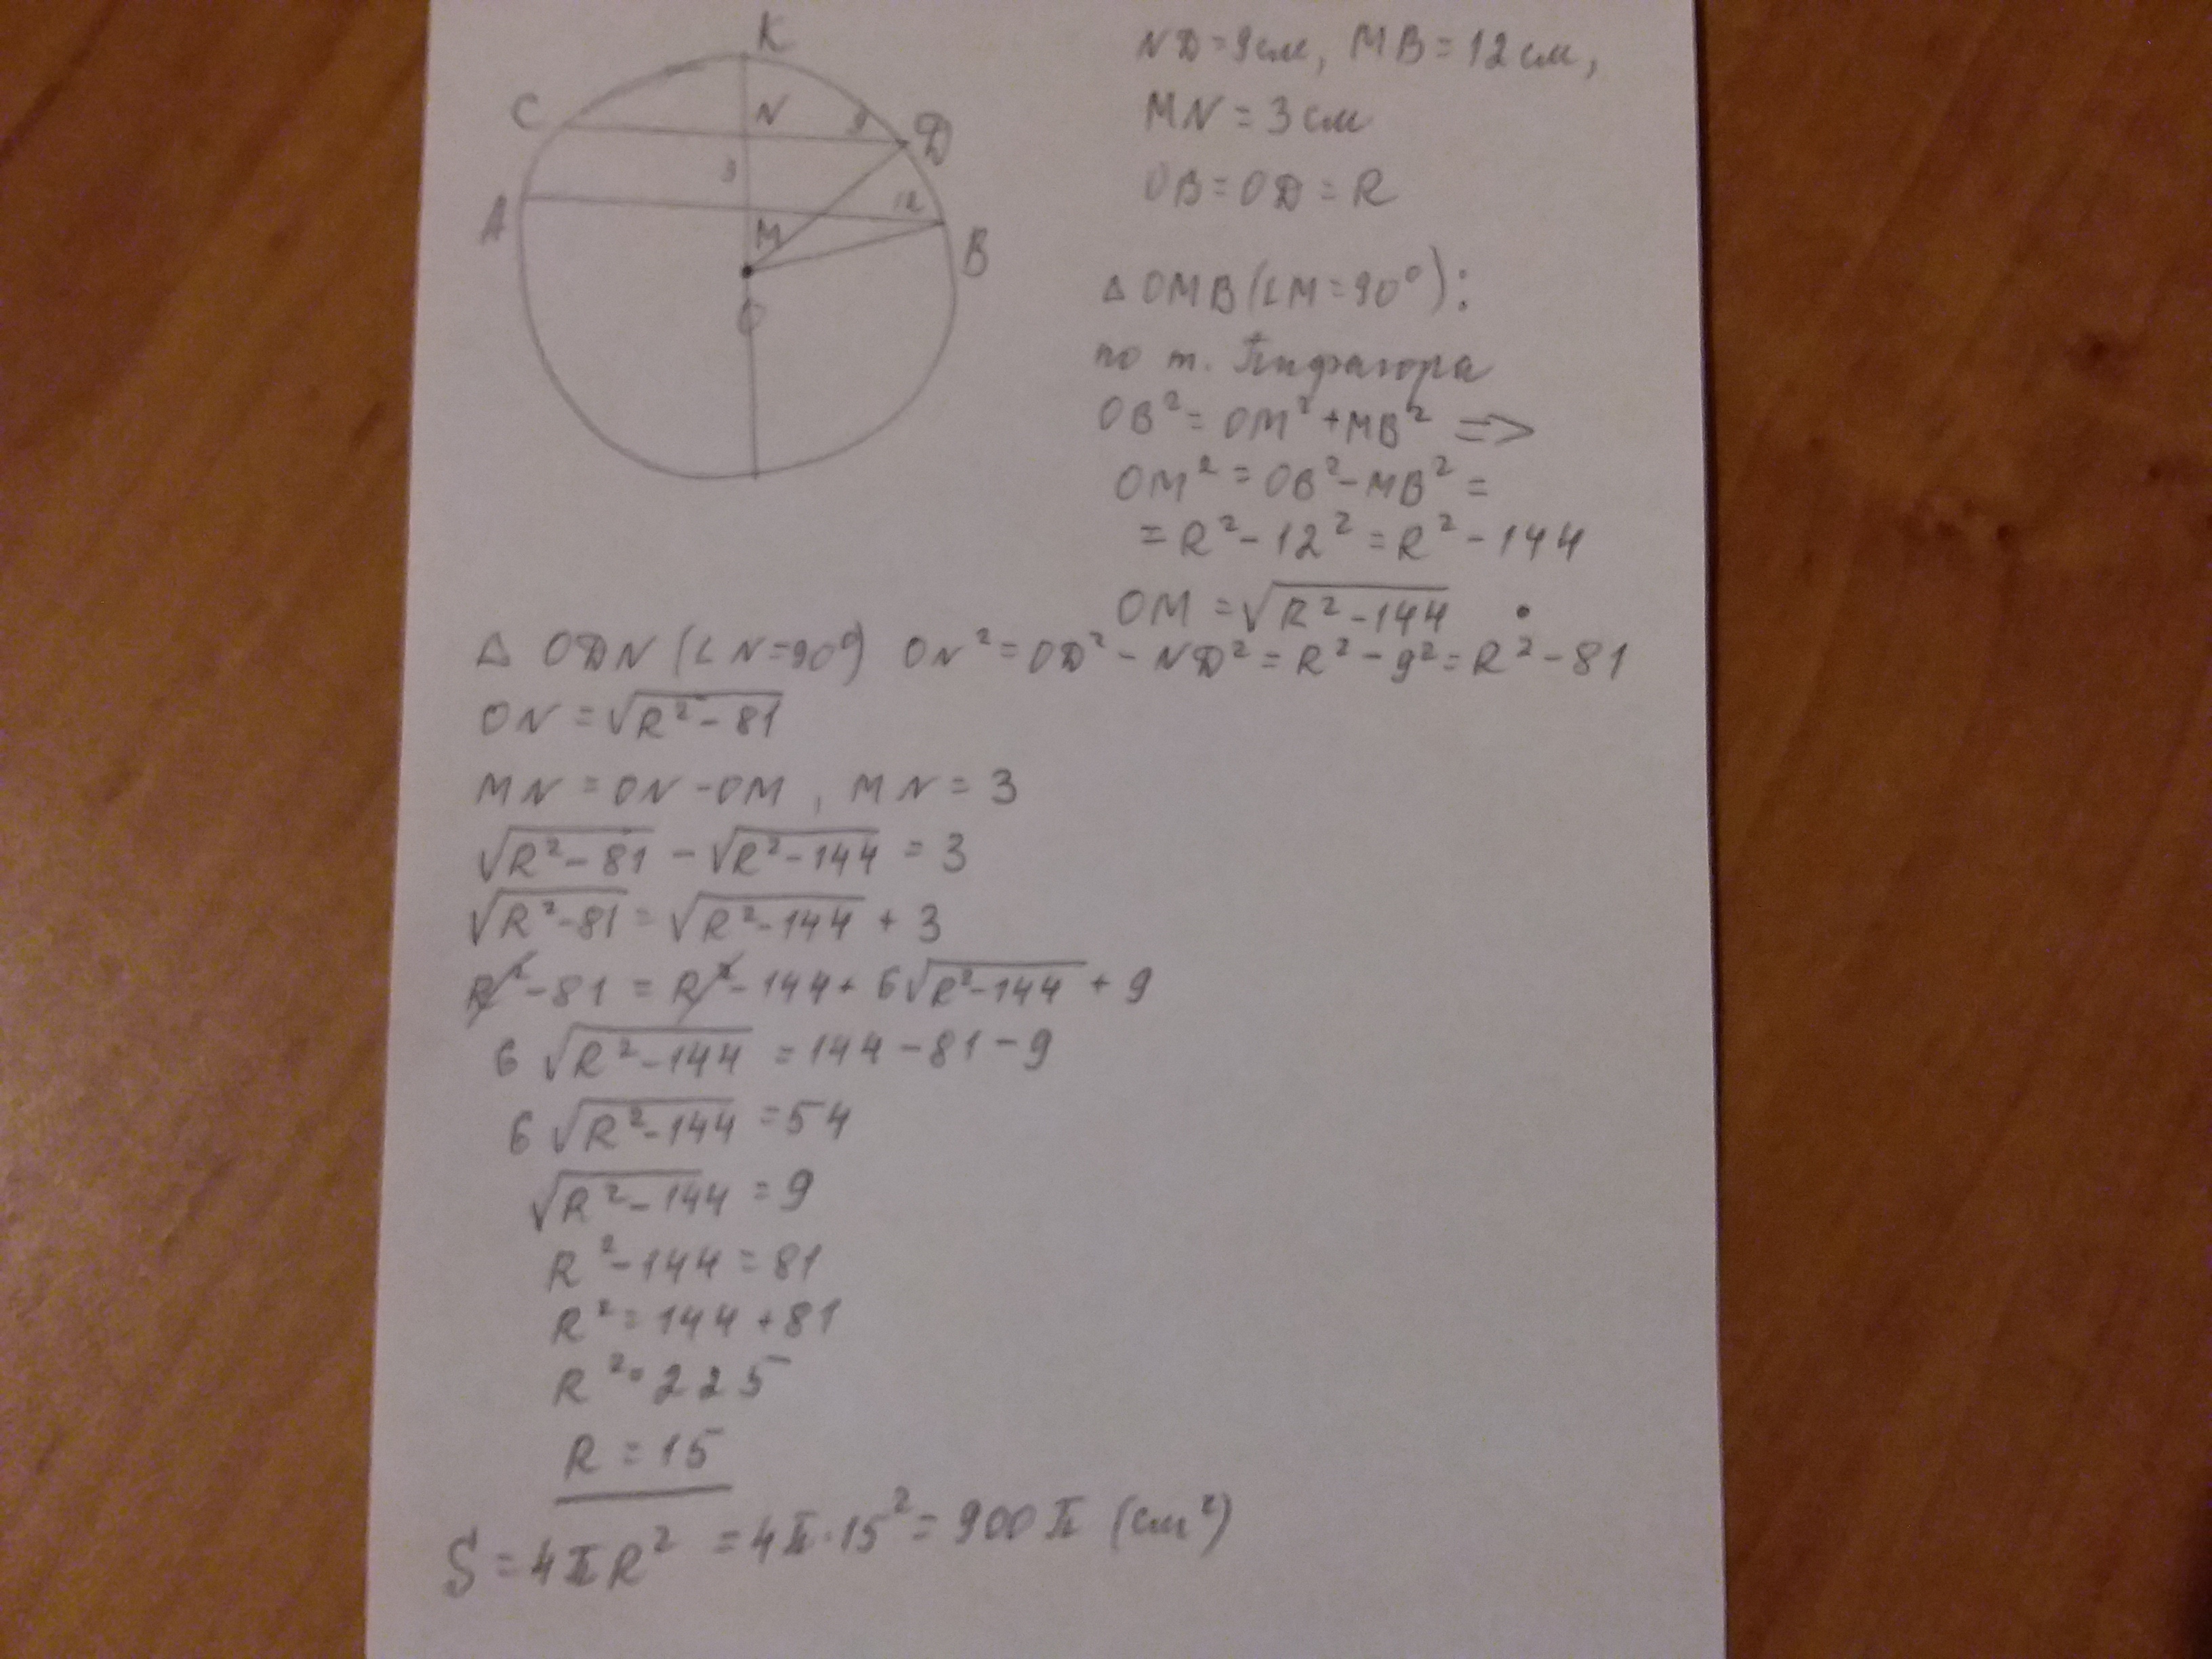 K
C
N
9
D
3
A
12
M
B
O
ND = 9 см, MB = 12 см,
MN = 3 см
OB = OD = R
△ OMB (∠M = 90°):
по т. Пифагора
OB² = OM² + MB² =>
OM² = OB² - MB² =
= R² - 12² = R² - 144
OM = √(R² - 144)
△ ODN (∠N = 90°) ON² = OD² - ND² = R² - 9² = R² - 81
ON = √(R² - 81)
MN = ON - OM, MN = 3
√(R² - 81) - √(R² - 144) = 3
√(R² - 81) = √(R² - 144) + 3
R² - 81 = R² - 144 + 6√(R² - 144) + 9
6√(R² - 144) = 144 - 81 - 9
6√(R² - 144) = 54
√(R² - 144) = 9
R² - 144 = 81
R² = 144 + 81
R² = 225
R = 15
S = 4πR² = 4π·15² = 900π (см²)